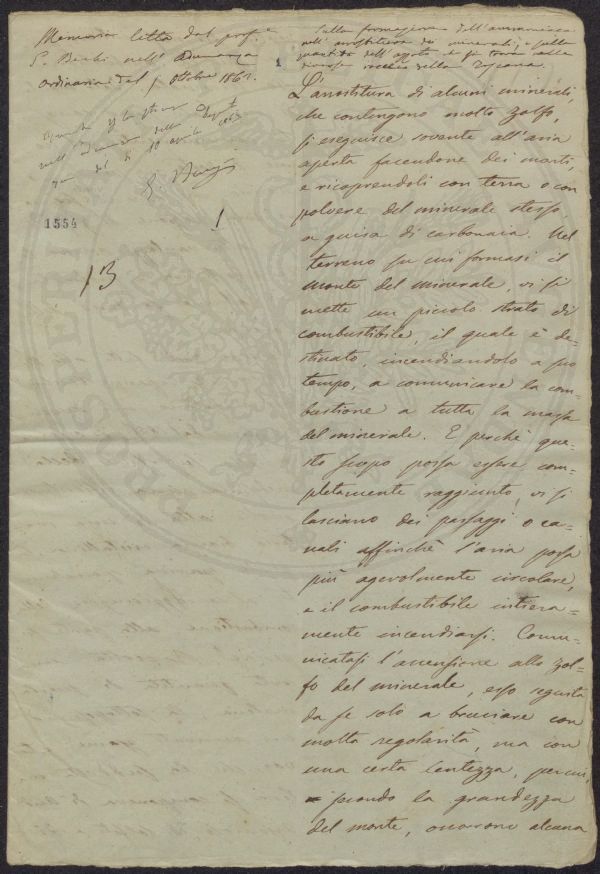 Memoria letta dal prof.e
E. Bechi nell'Adunanza
ordinaria del 1 Ottobre 1862.
nell'Adunanza della
del dì 10 aprile 1863
1554
!
13
1
Sulla formazione dell'ammoniaca
nell'arrostitura dei minerali; e sulla
quantità dell'azoto che si trova nelle
diverse roccie della Toscana.
L'arrostitura di alcuni minerali,
che contengono molto zolfo,
si eseguisce sovente all'aria
aperta facendone dei monti,
e ricoprendoli con terra o con
polvere del minerale stesso,
a guisa di carbonaia. Nel
terreno su cui formasi il
monte del minerale, vi si
mette un piccolo strato di
combustibile, il quale è de-
stinato, incendiandolo a suo
tempo, a comunicare la com-
bustione a tutta la massa
del minerale. E perchè que-
sto scopo possa essere com-
pletamente raggiunto, vi si
lasciano dei passaggi o ca-
nali affinchè l'aria possa
più agevolmente circolare,
e il combustibile intiera-
mente incendiarsi. Comu-
nicatasi l'accensione allo zol-
fo del minerale, esso seguita
da se solo a bruciare con
molta regolarità, ma con
una certa lentezza, perciò,
secondo la grandezza
del monte, occorrono alcuna